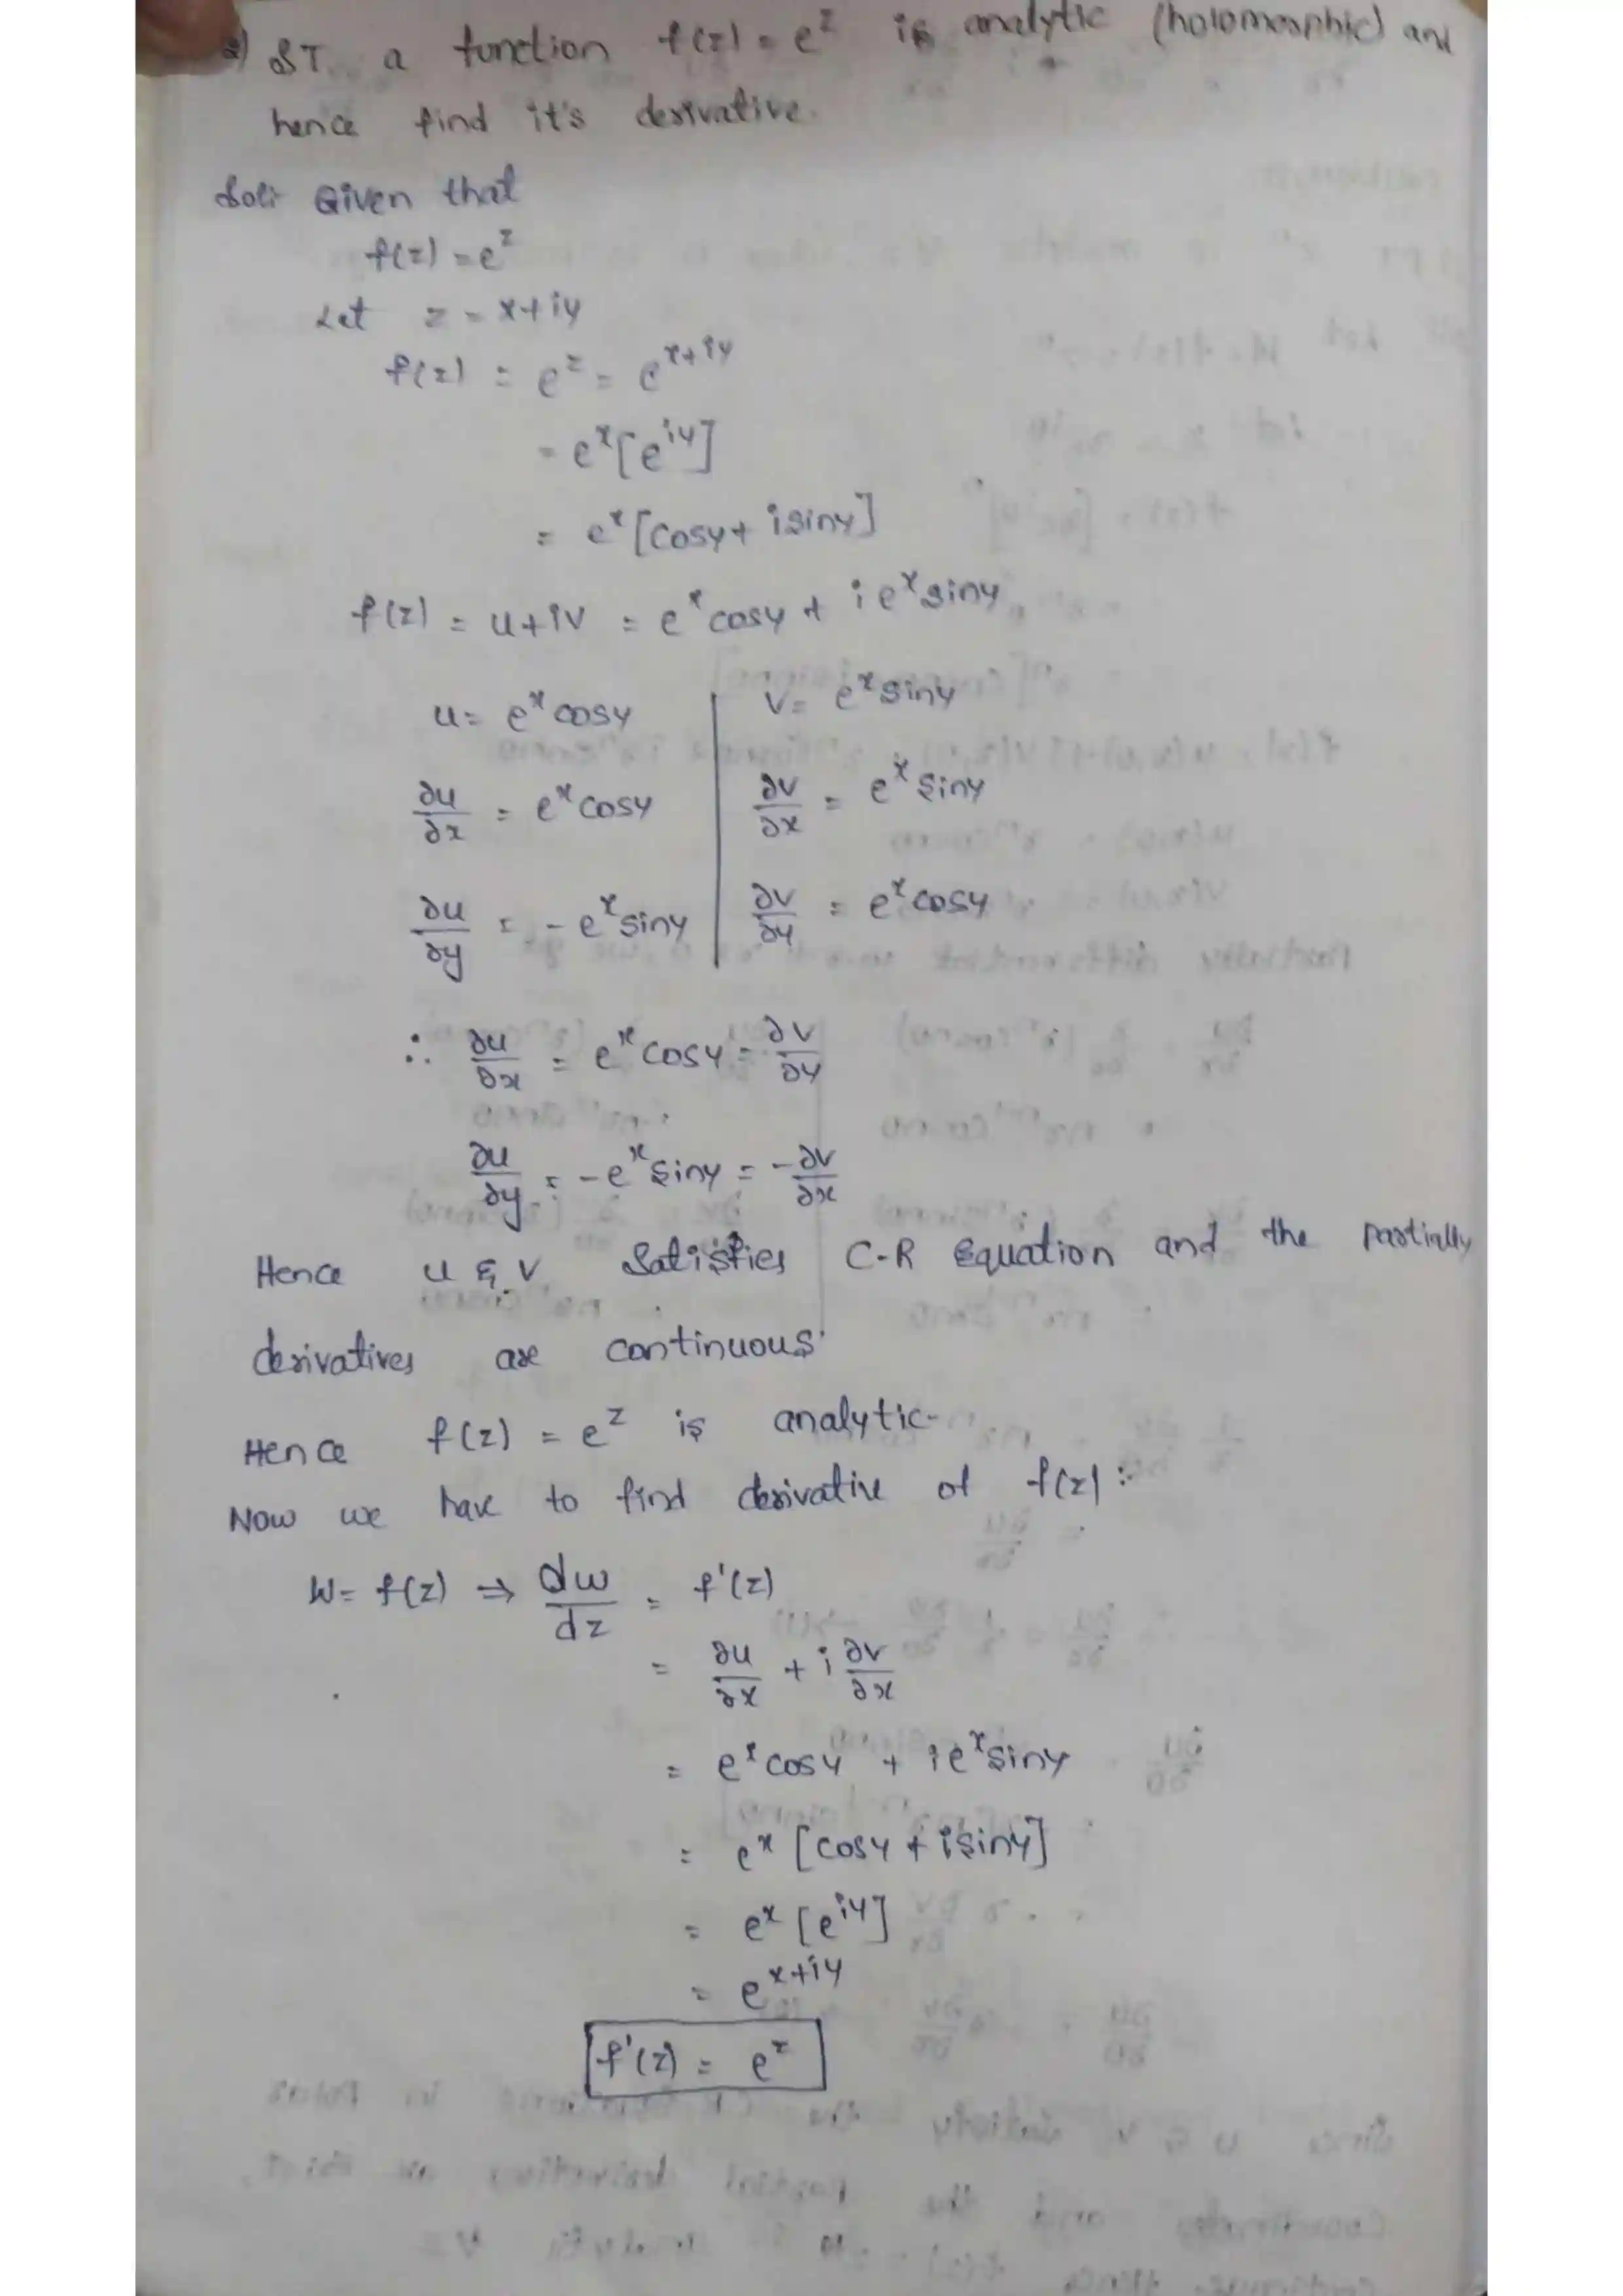 2) ST a function f(z) = e^z is analytic (holomorphic) and
hence find it's derivative.
Sol:- Given that
f(z) = e^z
Let z = x+iy
f(z) = e^z = e^{x+iy}
= e^x[e^{iy}]
= e^x[cosy+ isiny]
f(z) = u+iv = e^x cosy + i e^x siny
u= e^x cosy | v= e^x siny
∂u/∂x = e^x cosy | ∂v/∂x = e^x siny
∂u/∂y = - e^x siny | ∂v/∂y = e^x cosy
∴ ∂u/∂x = e^x cosy = ∂v/∂y
∂u/∂y = -e^x siny = -∂v/∂x
Hence u & v Satisfies C-R Equation and the partially
derivatives are continuous.
Hence f(z) = e^z is analytic.
Now we have to find derivative of f(z):-
W= f(z) ⇒ dw/dz = f'(z)
= ∂u/∂x + i ∂v/∂x
= e^x cosy + ie^x siny
= e^x [cosy + isiny]
= e^x [e^{iy}]
= e^{x+iy}
f'(z) = e^z